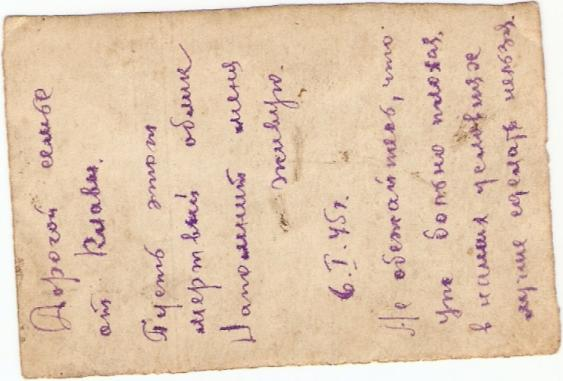 Дорогой семье
от Клавы.
Пусть этот
мертвый облик
Напомнит меня
живую.
6.I.45г.
Не обежайтесь, что
уж больно плохая,
в наших условиях
лучше сделать нельзя.